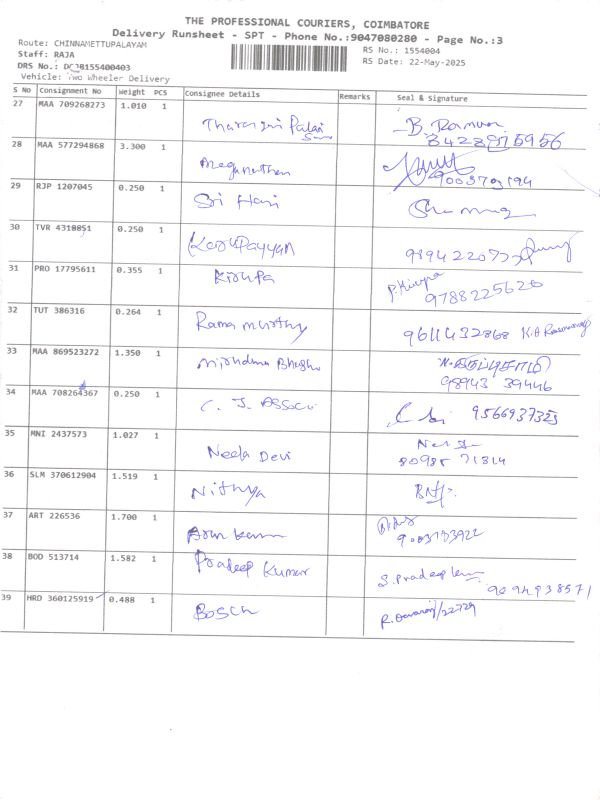 THE PROFESSIONAL COURIERS, COIMBATORE
Delivery Runsheet - SPT - Phone No.:9047080280 - Page No.:3
Route: CHINNAMETTUPALAYAM
RS No.: 1554004
Staff: RAJA
RS Date: 22-May-2025
DRS No.: 155400403
Vehicle: Two Wheeler Delivery
S No Consignment No Weight PCS Consignee Details Remarks Seal & Signature
27 MAA 709268273 1.010 1 B. Raman
28 MAA 577294868 3.300 1
29 RJP 1207045 0.250 1 Sri Hari
30 TVR 4318851 0.250 1 Karupayyan
31 PRO 17795611 0.355 1 Kirupa P. Kirupa
9788225620
32 TUT 386316 0.264 1 Rama murthy 9611432868
33 MAA 869523272 1.350 1 N. கருப்புசாமி
98943 39446
34 MAA 708264367 0.250 1 C. J. Associ
35 MNI 2437573 1.027 1 Neela Devi
80985 71814
36 SLM 370612904 1.519 1 Nithya
37 ART 226536 1.700 1 Arun
38 BOD 513714 1.582 1 Pradeep Kumar S. Pradeep
9694938571
39 HRD 360125919 0.488 1 BOSCH